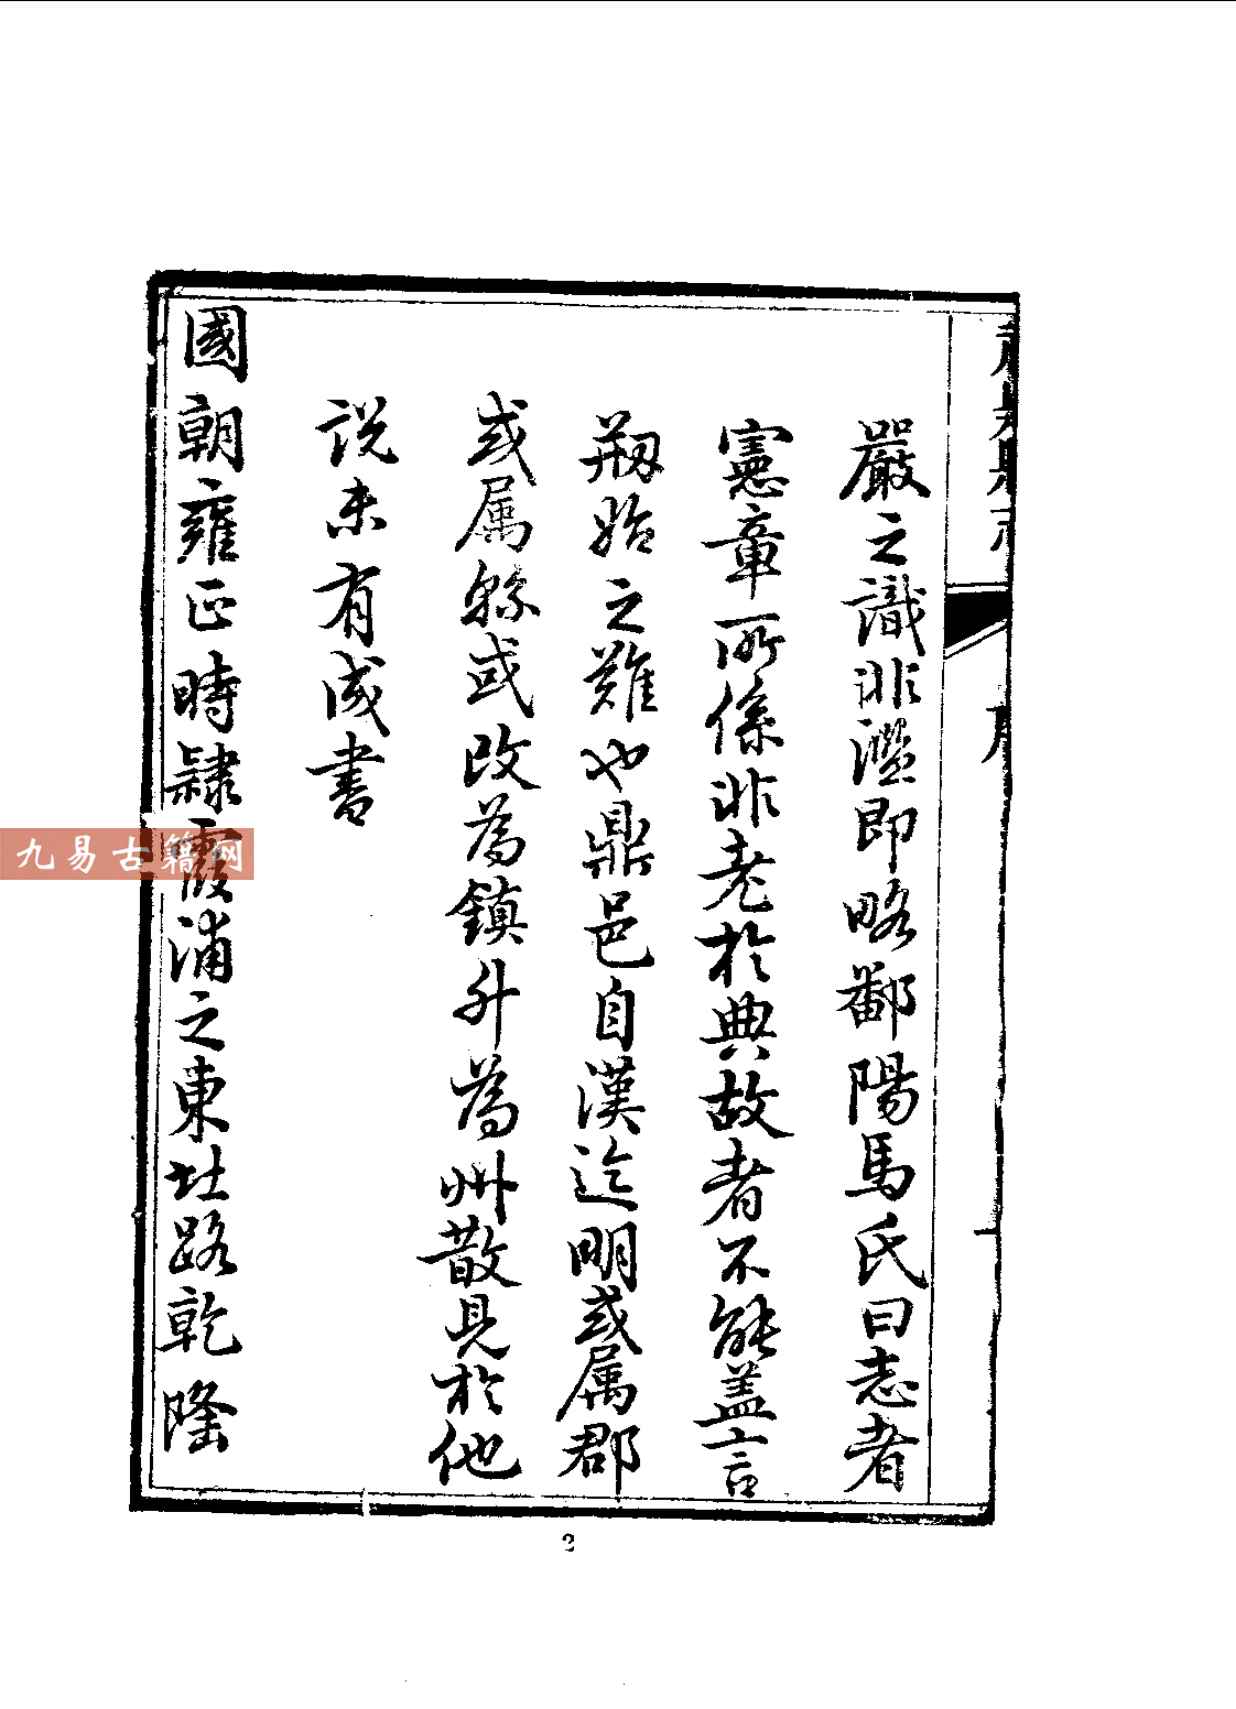 嚴之識非濫即略鄱陽馬氏曰志者
憲章所係非老於典故者不能蓋言
剏始之難也鼎邑自漢迄明或属郡
或属縣或改為鎮升為州散見於他
説未有成書
國朝雍正時隸霞浦之東北路乾隆
九易古籍网
2